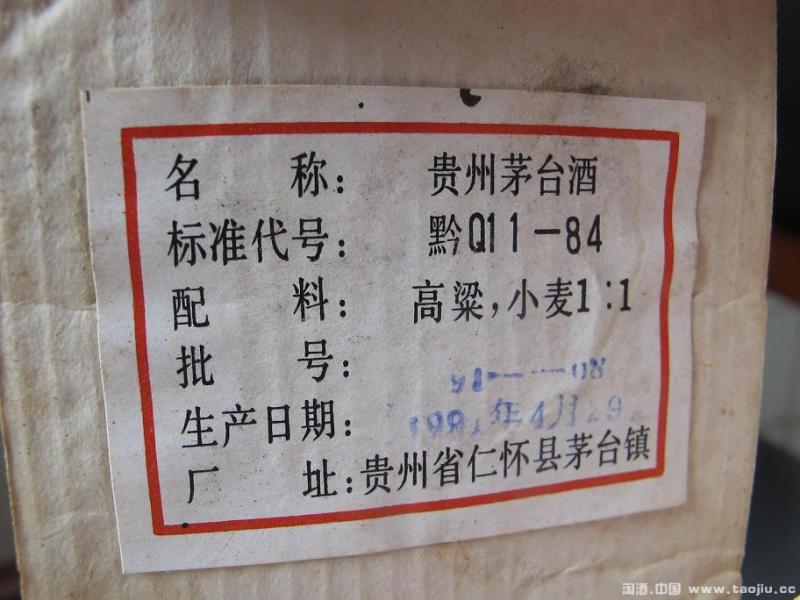 名 称： 贵州茅台酒
标准代号： 黔Q11-84
配 料： 高粱，小麦1:1
批 号： 91---08
生产日期： 年4月29
厂 址：贵州省仁怀县茅台镇
淘酒.中国 www.taojiu.cc